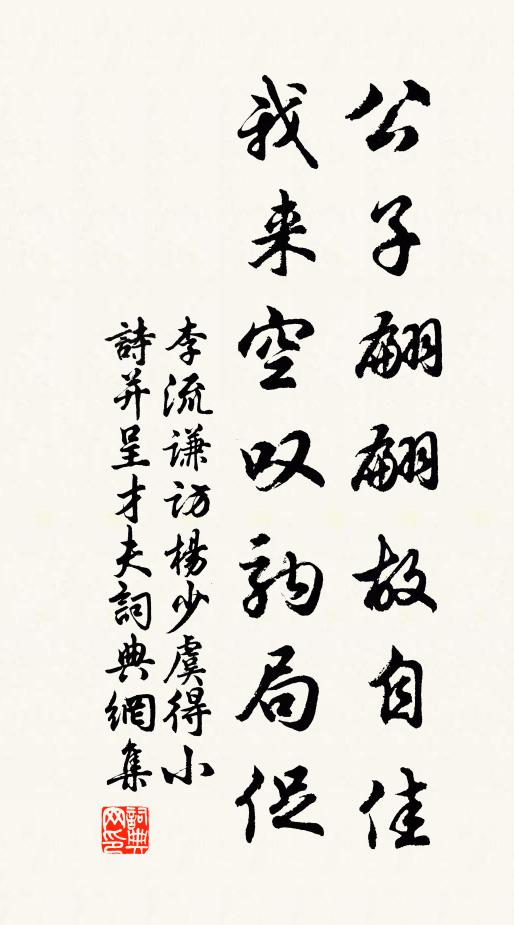 公子翩翩故自佳
我来空叹驹局促
李流谦访楊少虞得小
詩并呈才夫詞典網集
詞典网印